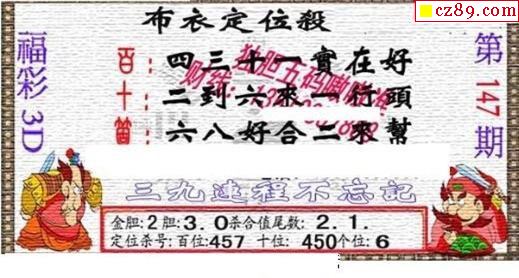 cz89.com
布衣定位殺
福彩3D
第147期
百：四三十一實在好
十：二到六來一行頭
個：六八好合二來幫
三九連程不忘記
金胆:2胆:3.0杀合值尾数:2.1.
定位杀号:百位:457 十位:450个位:6